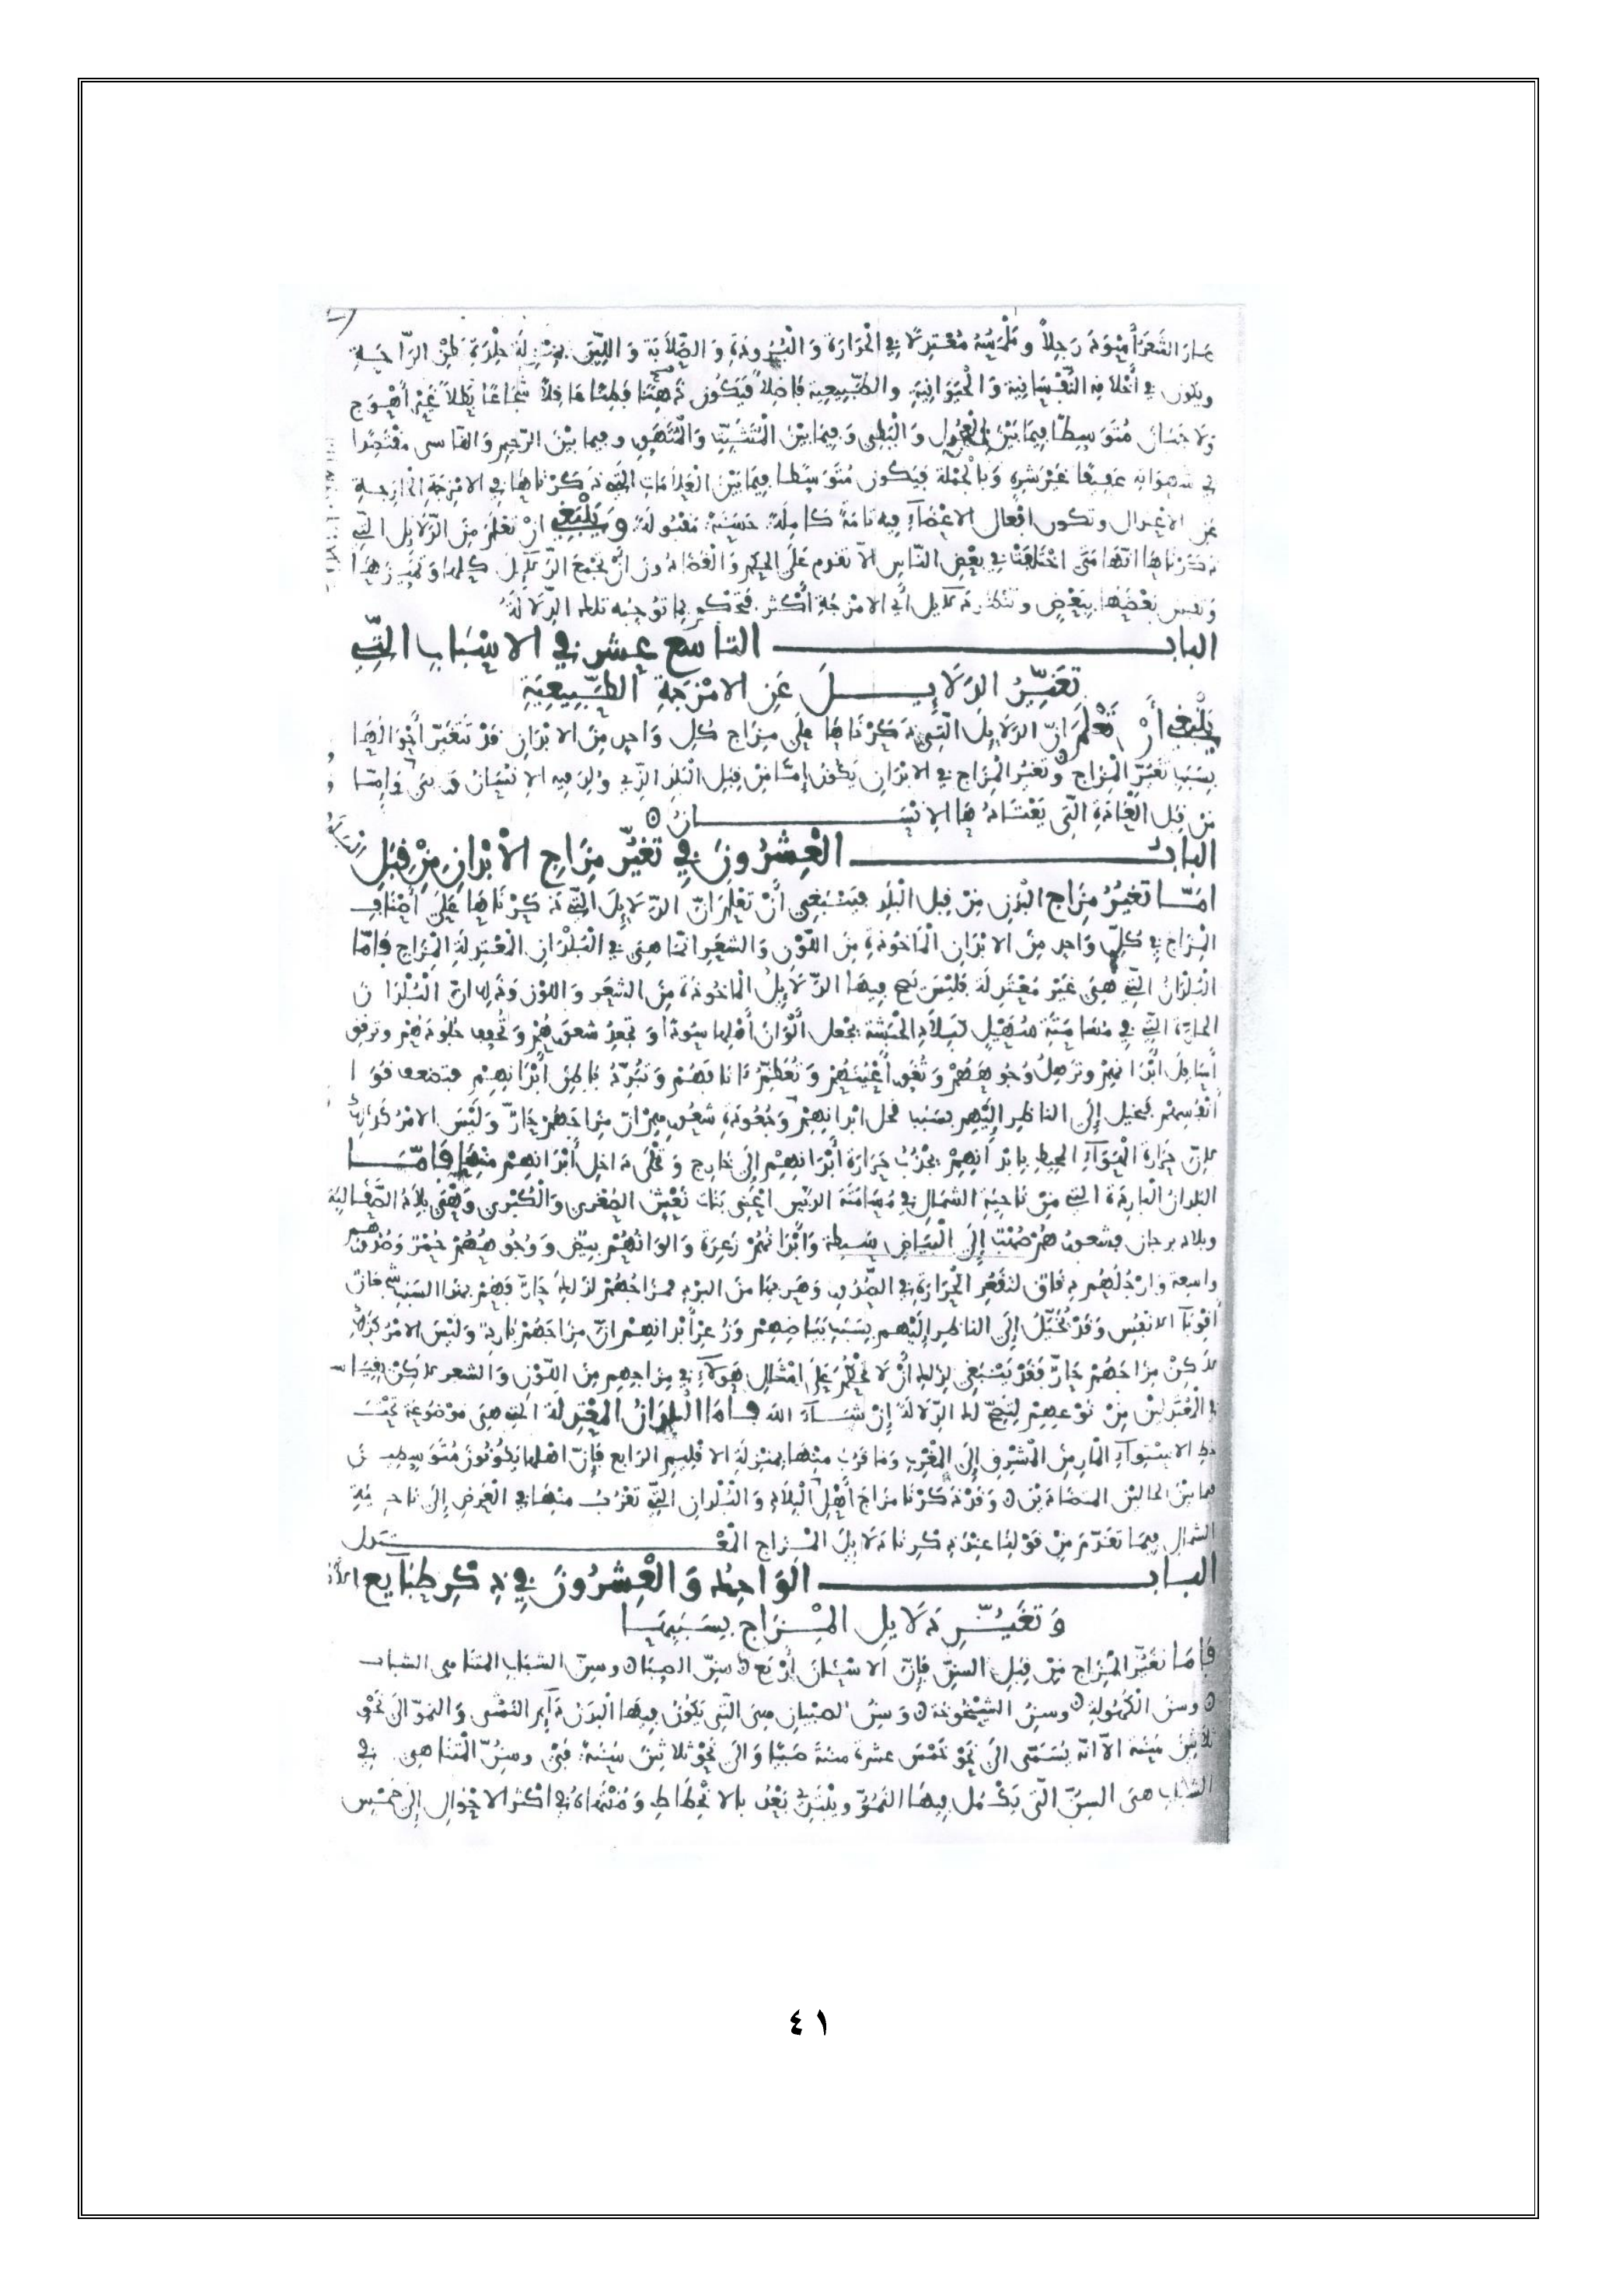 صار الشعر أسود رجلاً وملمسه معتدلًا في الحرارة والبرودة والصلابة واللين بمنزلة جلدة بطن الراحة
ويكون في أخلاقه النفسانية والحيوانية والطبيعية فاضلاً فيكون ذهنًا فطنًا عاقلاً شجاعًا بطلاً غير أهوج
ولا جبان متوسطًا فيما بين العجول والبطي وفيما بين المتثبت والمتهور وفيما بين الرحيم والقاسي مقتصدا
في شهواته عفيفا غير شره وبالجملة فيكون متوسطا فيما بين العلامات التي ذكرناها في الامزجة الخارجة
عن الاعتدال وتكون افعال الاعضاء فيه تامة كاملة حسنة مقبولة وينبغي ان تعلم من الدلايل التي
ذكرناها انها متى اختلفت في بعض الناس الا تقدم على الحكم والقضا دون أن تجمع الدلايل كلها وتميزها
وتقيس بعضها ببعض وتنظر دلايل أي الامزجة أكثر فتحكم بما توجبه تلك الدلالة
الباب التاسع عشر في الاسباب التي
تغير الدلايل عن الامزجة الطبيعية
ينبغي أن تعلم ان الدلايل التي ذكرناها على مزاج كل واحد من الابدان قد تتغير أحوالها
بسبب تغير المزاج وتغير المزاج في الابدان يكون إمّا من قبل البلد الذي ولد فيه الانسان وربي وإمّا
من قبل العادة التي يعتادها الانسان ۞
الباب العشرون في تغير مزاج الابدان من قبل البلدان
امّا تغير مزاج البدن من قبل البلد فينبغي أن تعلم انّ الدلايل التي ذكرناها على أصناف
المزاج في كل واحد من الابدان الماخوذة من اللون والشعر انما هي في البلدان المعتدلة المزاج فامّا
البلدان التي هي غير معتدلة فليس تصح فيها الدلايل الماخوذة من الشعر واللون وذلك ان البلدان
الحارة التي في مسامتة سهيل كبلاد الحبشة تجعل ألوان أهلها سودا وتجعد شعورهم وتجفف جلودهم وترقق
أسافل أبدانهم وترهل وجوههم وأعينهم وتعظم انافهم وتبرد باطن أبدانهم فتضعف قوا
أنفسهم فيخيل إلى الناظر إليهم بسبب قحل ابدانهم وجعودة شعورهم ان مزاجهم حارّ وليس الامر كذلك
لان حرارة الهواء المحيط بابدانهم يجذب حرارة أبدانهم إلى خارج وتخلى داخل أبدانهم منها فامّا
البلدان الباردة التي من ناحية الشمال في مسامتة الدبّين اعني بنات نعش الصغرى والكبرى وهي بلاد الصقالبة
وبلاد برجان فشعورهم صهب إلى البياض بسيطة وأبدانهم زعرة والوانهم بيض ووجوههم حمر وصدورهم
واسعة وارجلهم دقاق لتقعر الحرارة في الصدور وهربها من البرد فمزاجهم لذلك حارّ وهم بهذا السبب شجعان
أقوياء الانفس وقد يخيل إلى الناظر إليهم بسبب بياضهم وزعر أبدانهم انّ مزاجهم بارد وليس الامر كذلك
لكن مزاجهم حارّ فقد ينبغي لذلك أن لا تحكم على امثال هولاء في مزاجهم من اللون والشعر لكن
في المعتدلين من نوعهم لتصح لك الدلالة إن شاء الله فاما البلدان المعتدلة التي هي موضوعة تحت
خط الاستواء المار من المشرق إلى المغرب وما قرب منها بمنزلة الاقليم الرابع فإنّ اهلها يكونون متوسطين
فيما بين الحالين المتضادين ۞ وقد ذكرنا مزاج أهل البلاد والبلدان التي تقرب منها في العرض إلى ناحية
الشمال فيما تقدم من قولنا عند ذكرنا دلايل المزاج المعتدل
الباب الواحد والعشرون في ذكر طبايع
وتغير دلايل المزاج بسببها
فاما تغير المزاج من قبل السن فإن الاسنان أربع ۞ سن الصبا ۞ وسن الشباب المتناهى الشباب
۞ وسن الكهولة ۞ وسن الشيخوخة ۞ وسن الصبيان هي التي يكون فيها البدن دايم النشو والنمو الى نحو
ثلاثين سنة الا انه يسمى الى نحو خمس عشرة سنة صبيا والى نحو ثلاثين سنة فتى وسن المتناهي في
الشباب هي السن التي يكمل فيها النمو ويبتدي بعد بالانحطاط ومنتهاه في اكثر الاحوال إلى خمس
٤١